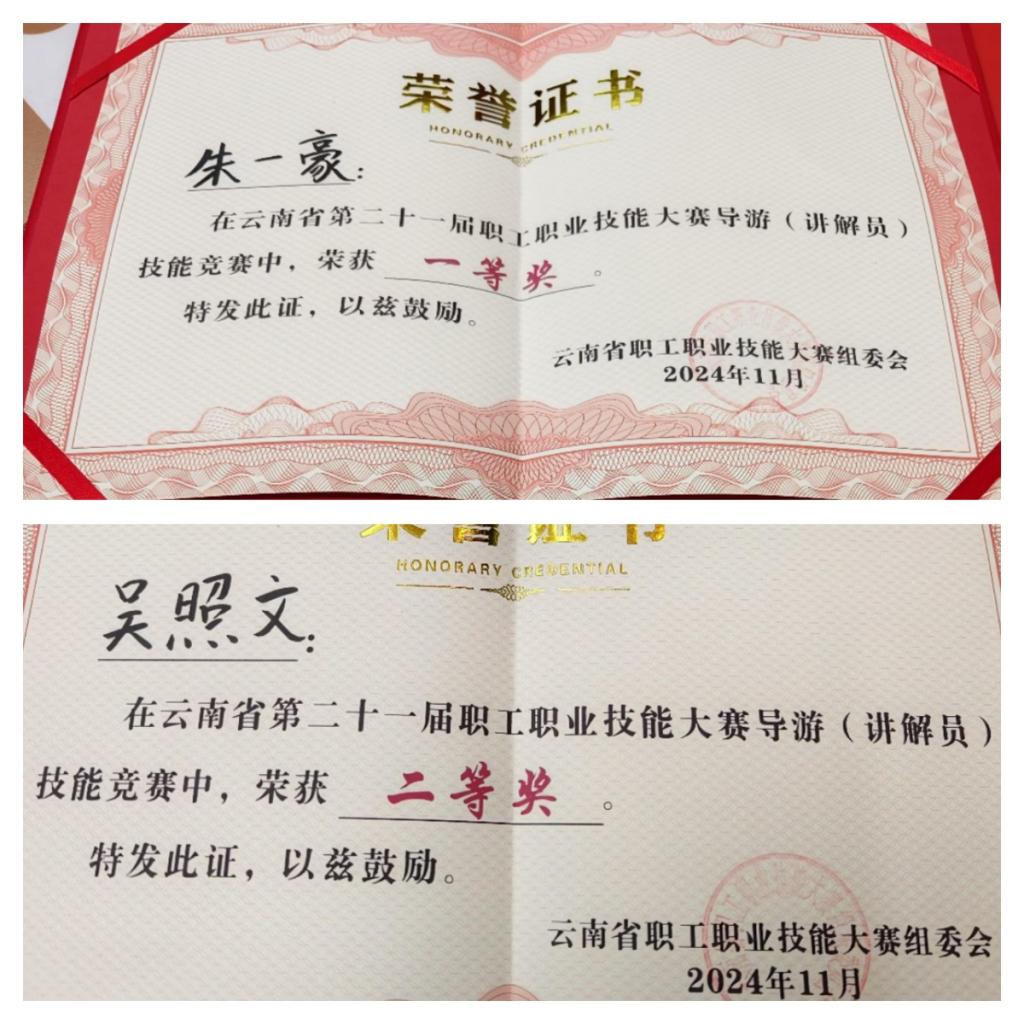 荣誉证书
HONORARY CREDENTIAL
朱一豪:
在云南省第二十一届职工职业技能大赛导游(讲解员)
技能竞赛中,荣获 一等奖。
特发此证,以兹鼓励。
云南省职工职业技能大赛组委会
2024年11月
荣誉证书
HONORARY CREDENTIAL
吴照文:
在云南省第二十一届职工职业技能大赛导游(讲解员)
技能竞赛中,荣获 二等奖。
特发此证,以兹鼓励。
云南省职工职业技能大赛组委会
2024年11月